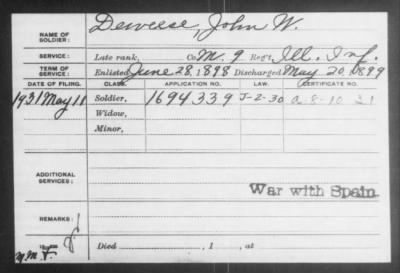 NAME OF SOLDIER: Deweese, John W.
SERVICE: Late rank, Co. M. 9 Reg't Ill. Inf.
TERM OF SERVICE: Enlisted June 28, 1898 Discharged May 20, 1899
DATE OF FILING. CLASS. APPLICATION NO. LAW. CERTIFICATE NO.
1931 May 11 Soldier, 1694339 J-2-30 a-8-10 31
Widow,
Minor,
ADDITIONAL SERVICES:
War with Spain.
REMARKS:
Died , 1 , at